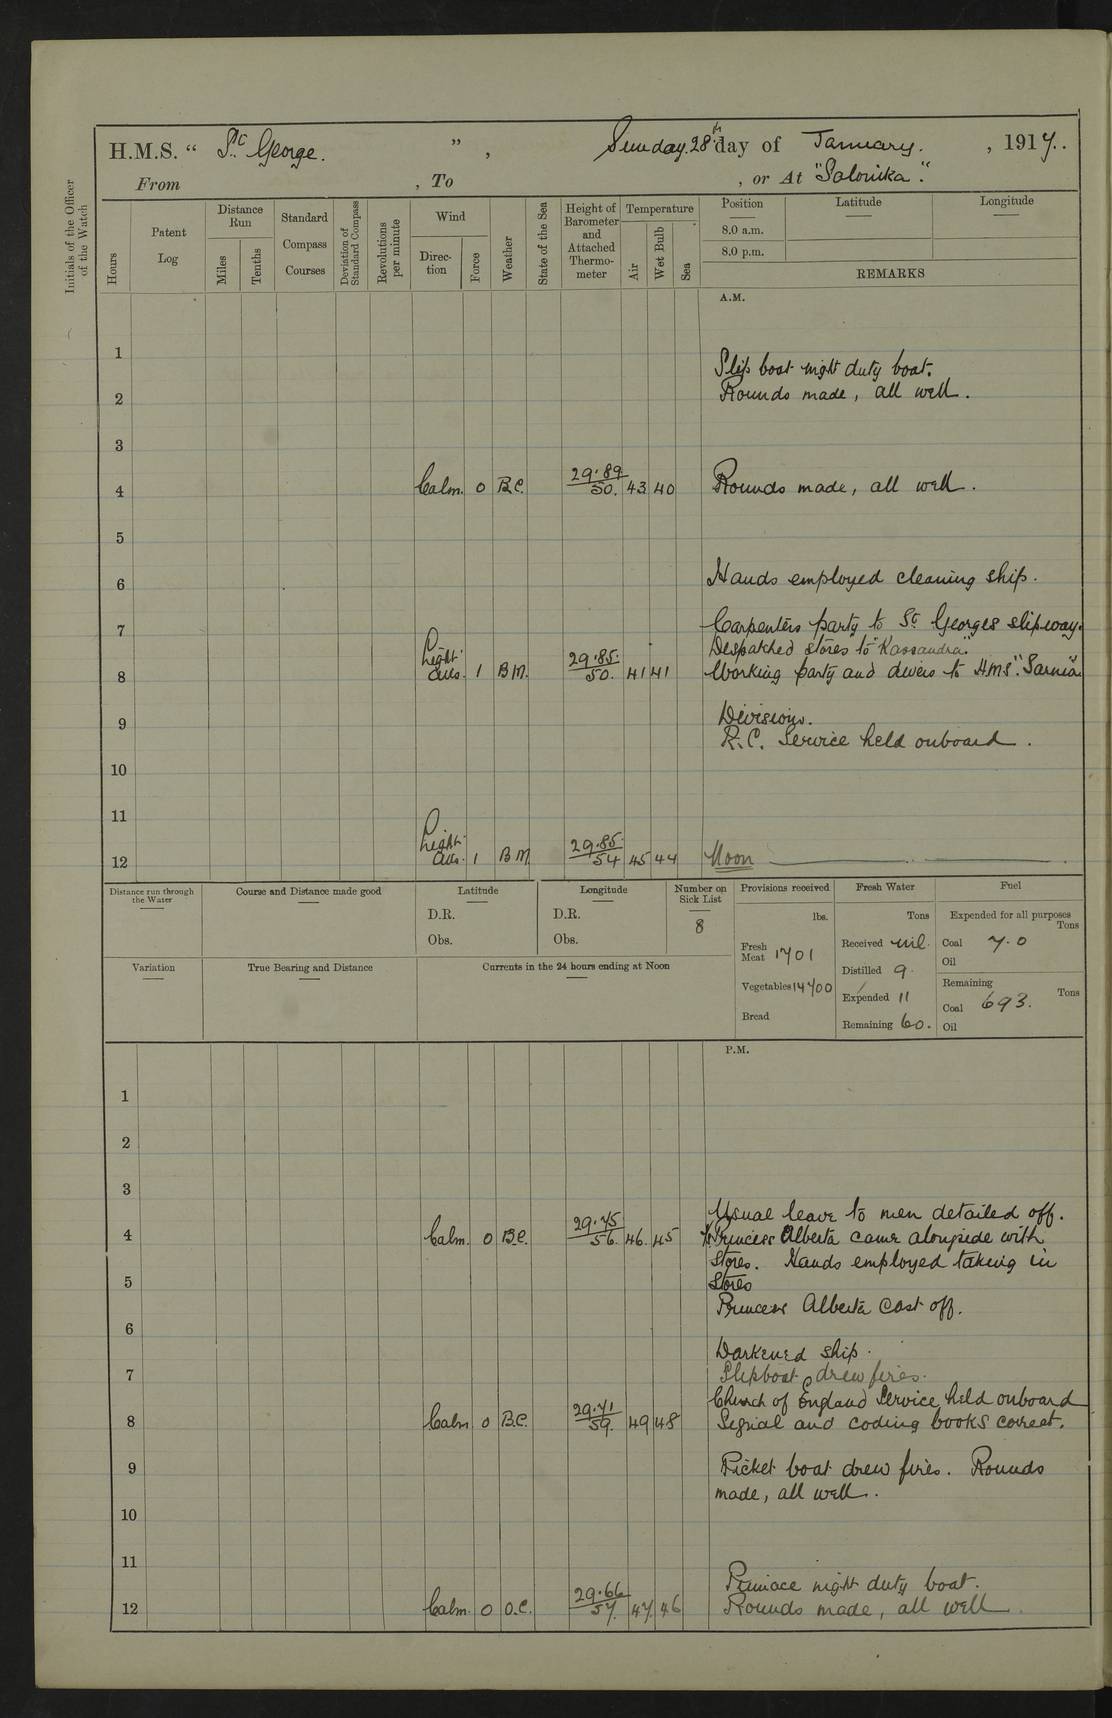 H.M.S. “ St. George. ” , Sunday. 28th day of January. , 1917.
From , To , or At "Salonika".
Initials of the Officer of the Watch
Hours
Patent Log
Distance Run
Miles
Tenths
Standard Compass Courses
Deviation of Standard Compass
Revolutions per minute
Wind
Direction
Force
Weather
State of the Sea
Height of Barometer and Attached Thermometer
Temperature
Air
Wet Bulb
Sea
Position
8.0 a.m.
8.0 p.m.
Latitude
Longitude
REMARKS
A.M.
1
Slip boat night duty boat.
2 Rounds made, all well.
3
4 Calm. 0 B.C. 29.89 50. 43 40 Rounds made, all well.
5
6 Hands employed cleaning ship.
7 Carpenters party to St Georges slipway.
Despatched stores to "Kassandra".
8 Light airs. 1 B M. 29.85. 50. 41 41 Working party and divers to H.M.S. "Sarnia"
9 Divisions.
R.C. Service held onboard.
10
11
12 Light airs. 1 B M. 29.85. 54 45 44 Noon
Distance run through the Water
Course and Distance made good
Latitude
D.R.
Obs.
Longitude
D.R.
Obs.
Number on Sick List
8
Provisions received
lbs.
Fresh Meat 1701
Vegetables 14700
Bread
Fresh Water
Tons
Received nil.
Distilled 9.
Expended 11
Remaining 60.
Fuel
Expended for all purposes
Tons
Coal 7.0
Oil
Remaining
Tons
Coal 693.
Oil
Variation
True Bearing and Distance
Currents in the 24 hours ending at Noon
P.M.
1
2
3
Usual leave to men detailed off.
4 Calm. 0 B.C. 29.75 56. 46. 45 Princess Alberta came alongside with
stores. Hands employed taking in
5 stores
Princess Alberta cast off.
6
Darkened ship.
7 Slipboat drew fires.
Church of England Service held onboard
8 Calm. 0 B.C. 29.71 59. 49 48 Signal and coding books correct.
9 Picket boat drew fires. Rounds
made, all well.
10
11
Pinnace night duty boat.
12 Calm. 0 O.C. 29.66 57. 47. 46 Rounds made, all well.